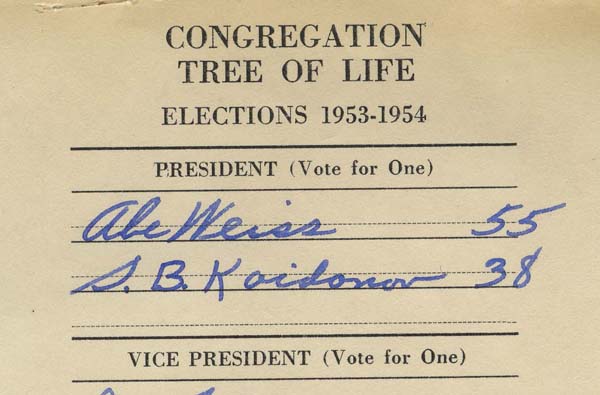 CONGREGATION
TREE OF LIFE
ELECTIONS 1953-1954
PRESIDENT (Vote for One)
Abe Weiss 55
S. B. Kaidanov 38
VICE PRESIDENT (Vote for One)